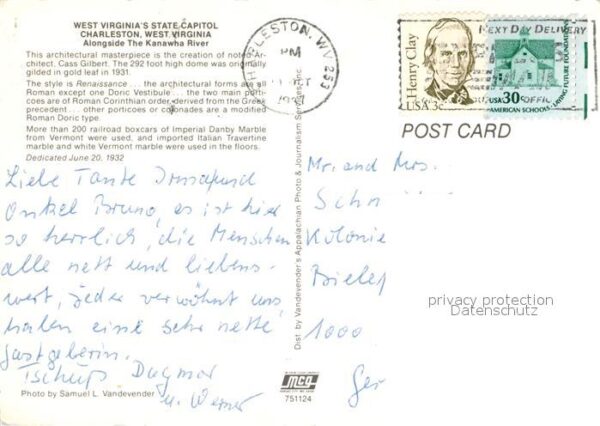 WEST VIRGINIA'S STATE CAPITOL
CHARLESTON, WEST VIRGINIA
Alongside The Kanawha River
This architectural masterpiece is the creation of noted archi-
tect, Cass Gilbert. The 292 foot high dome was originally
gilded in gold leaf in 1931.
The style is Renaissance ... the architectural forms are all
Roman except one Doric Vestibule ... the two main porti-
coes are of Roman Corinthian order derived from the Greek
precedent ... other porticoes or colonades are a modified
Roman Doric type.
More than 200 railroad boxcars of Imperial Danby Marble
from Vermont were used, and imported Italian Travertine
marble and white Vermont marble were used in the floors.
Dedicated June 20, 1932
Liebe Tante Irmgard und
Onkel Bruno, es ist hier
so herrlich, die Menschen
alle nett und liebens-
wert, jeder verwöhnt uns,
haben eine sehr nette
Gastgeberin.
Tschüß Dagmar
u. Werner
Photo by Samuel L. Vandevender
Dist by Vandevender's Appalachian Photo & Journalism Services, Inc.
CHARLESTON, WV 253
PM
OCT
NEXT DAY DELIVERY
Henry Clay
USA 3c
USA 30c
AMERICAN SCHOOLS
LAYING FUTURE FOUNDATIONS
POST CARD
Mr. and Mrs.
Schn
Kolonie
Bielef
1000
Ger
privacy protection
Datenschutz
mcg
751124